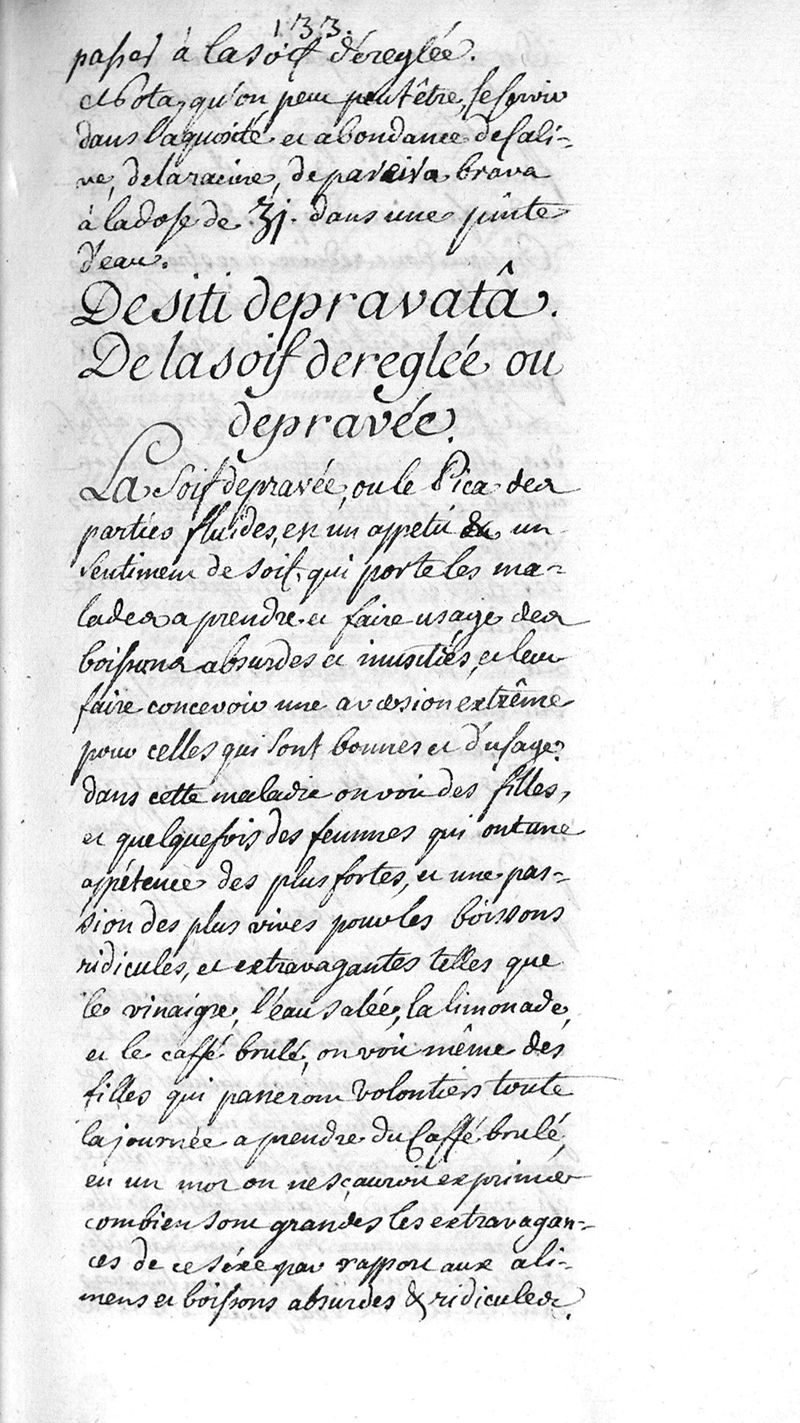 133.
passer à la soif déreglée.
Nota, qu'on peut peut être, se servir
dans l'aquosité et abondance de sali-
ve, de la racine, de pareiva brava
à la dose de ʒj. dans une pinte
d'eau.
De siti depravatâ.
De la soif dereglée ou
depravée.
La soif depravée, ou le Pica des
parties fluides, est un appetit & un
sentiment de soif, qui porte les ma-
lades a prendre et faire usage des
boissons absurdes et inusitiés, et leur
faire concevoir une aversion extrême
pour celles qui sont bonnes et d'usage.
dans cette maladie on voit des filles,
et quelquefois des femmes qui ont une
appétence des plus fortes, et une pas-
sion des plus vives pour les boissons
ridicules, et extravagantes telles que
le vinaigre, l'eau salée, la limonade,
et le caffé brulé, on voit même des
filles qui passeront volontiers toute
la journée a prendre du Caffé brulé,
en un mot on ne sçauroit exprimer
combien sont grandes les extravagan-
ces de ce séxe par rapport aux ali-
mens et boissons absurdes & ridicules.